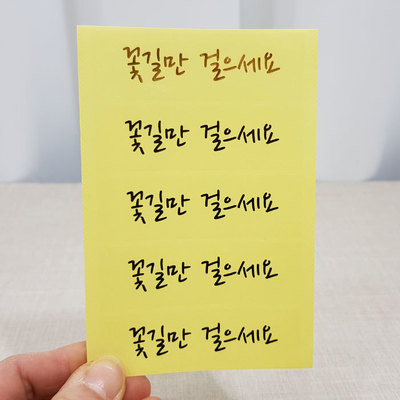 꽃길만 걸으세요
꽃길만 걸으세요
꽃길만 걸으세요
꽃길만 걸으세요
꽃길만 걸으세요